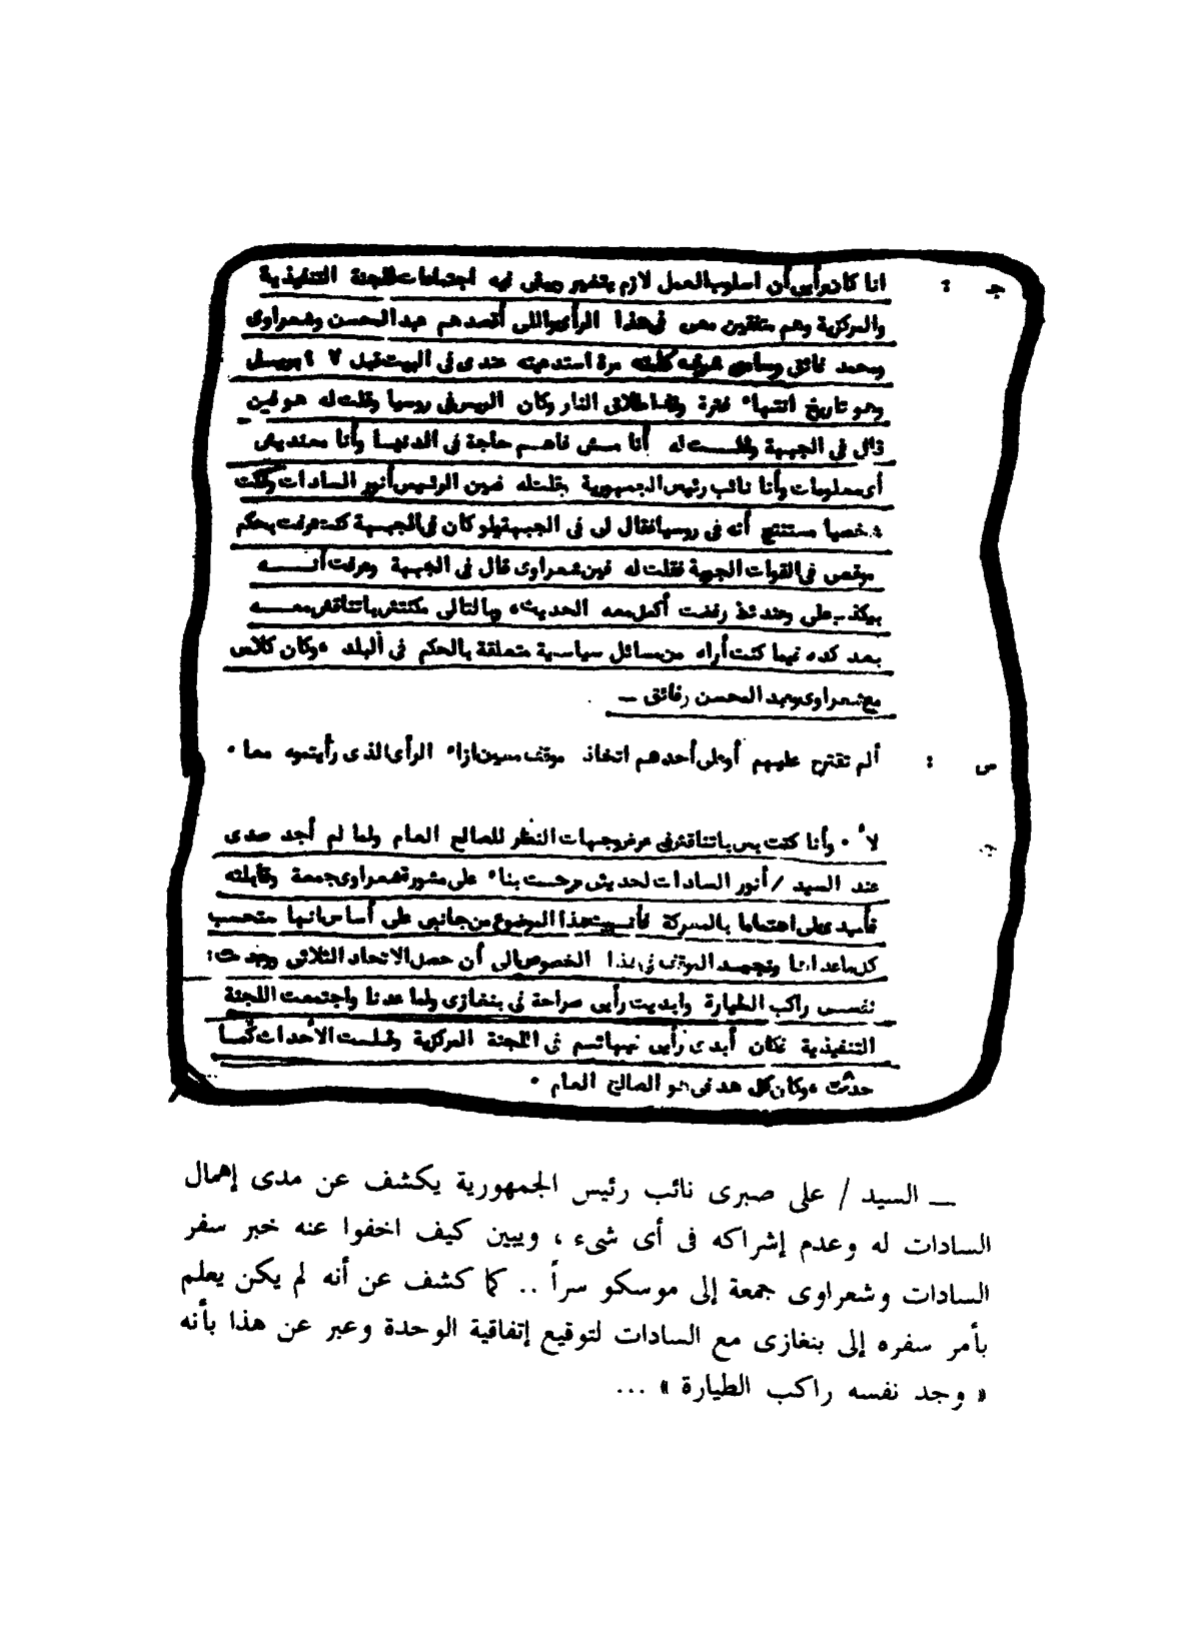 جـ : انا كان رأيى أن اسلوب العمل لازم يتغير ويبقى فيه اجتماعات للجنة التنفيذية
والمركزية وهم متفقين معى فى هذا الرأى واللى أقصدهم عبد المحسن وشعراوى
ومحمد فائق وسامى شرف مرة استدعيته عندى فى البيت قبل ٧
وهو تاريخ انتهاء فترة وقف اطلاق النار وكان الريس فى روسيا وقلت له هو فين
قال فى الجبهة وقلت له أنا مش فاهم حاجة فى الدنيا وأنا معنديش
أى معلومات وأنا نائب رئيس الجمهورية بقلتله فين الرئيس أنور السادات وكنت
شخصيا مستنتج أنه فى روسيا فقال لى فى الجبهة ولو كان فى الجبهة كنت عرفت بحكم
موقعى فى القوات الجوية فقلت له فين شعراوى قال فى الجبهة وعرفت أنـــه
بيكذب على وعندئذ رفضت أكمل معه الحديث ، وبالتالى مكنتش باتناقش معـــه
بعد كده فيما كنت أراه من مسائل سياسية متعلقة بالحكم فى البلد ، وكان كلامى
مع شعراوى وعبد المحسن وفائق ــ
س : ألم تقترح عليهم أو على أحدهم اتخاذ موقف معين ازاء الرأى الذى رأيتموه معا .
جـ لأ . وأنا كنت بس باتناقش فى عرض وجهات النظر للصالح العام ولما لم أجد صدى
عند السيد / أنور السادات لحديثى رحت بناء على مشورة شعراوى جمعة وقابلته
على اهتمامنا بالمعركة فأنهيت هذا الموضوع من جانبى على أساس انها متحسب
كل ماعداها وتجمد الموقف فى هذا الخصوص الى أن حصل الاتحاد الثلاثى ووجدت :
نفسى راكب الطيارة وابديت رأيى صراحة فى بنغازى ولما عدنا واجتمعت اللجنة
التنفيذية فكان أبدى رأيى فى اللجنة المركزية وتمت الأحداث كما
حدثت ، وكان كل هدفى هو الصالح العام .
ــ السيد / على صبرى نائب رئيس الجمهورية يكشف عن مدى إهمال
السادات له وعدم إشراكه فى أى شىء ، ويبين كيف اخفوا عنه خبر سفر
السادات وشعراوى جمعة إلى موسكو سراً .. كما كشف عن أنه لم يكن يعلم
بأمر سفره إلى بنغازى مع السادات لتوقيع إتفاقية الوحدة وعبر عن هذا بأنه
« وجد نفسه راكب الطيارة » ...